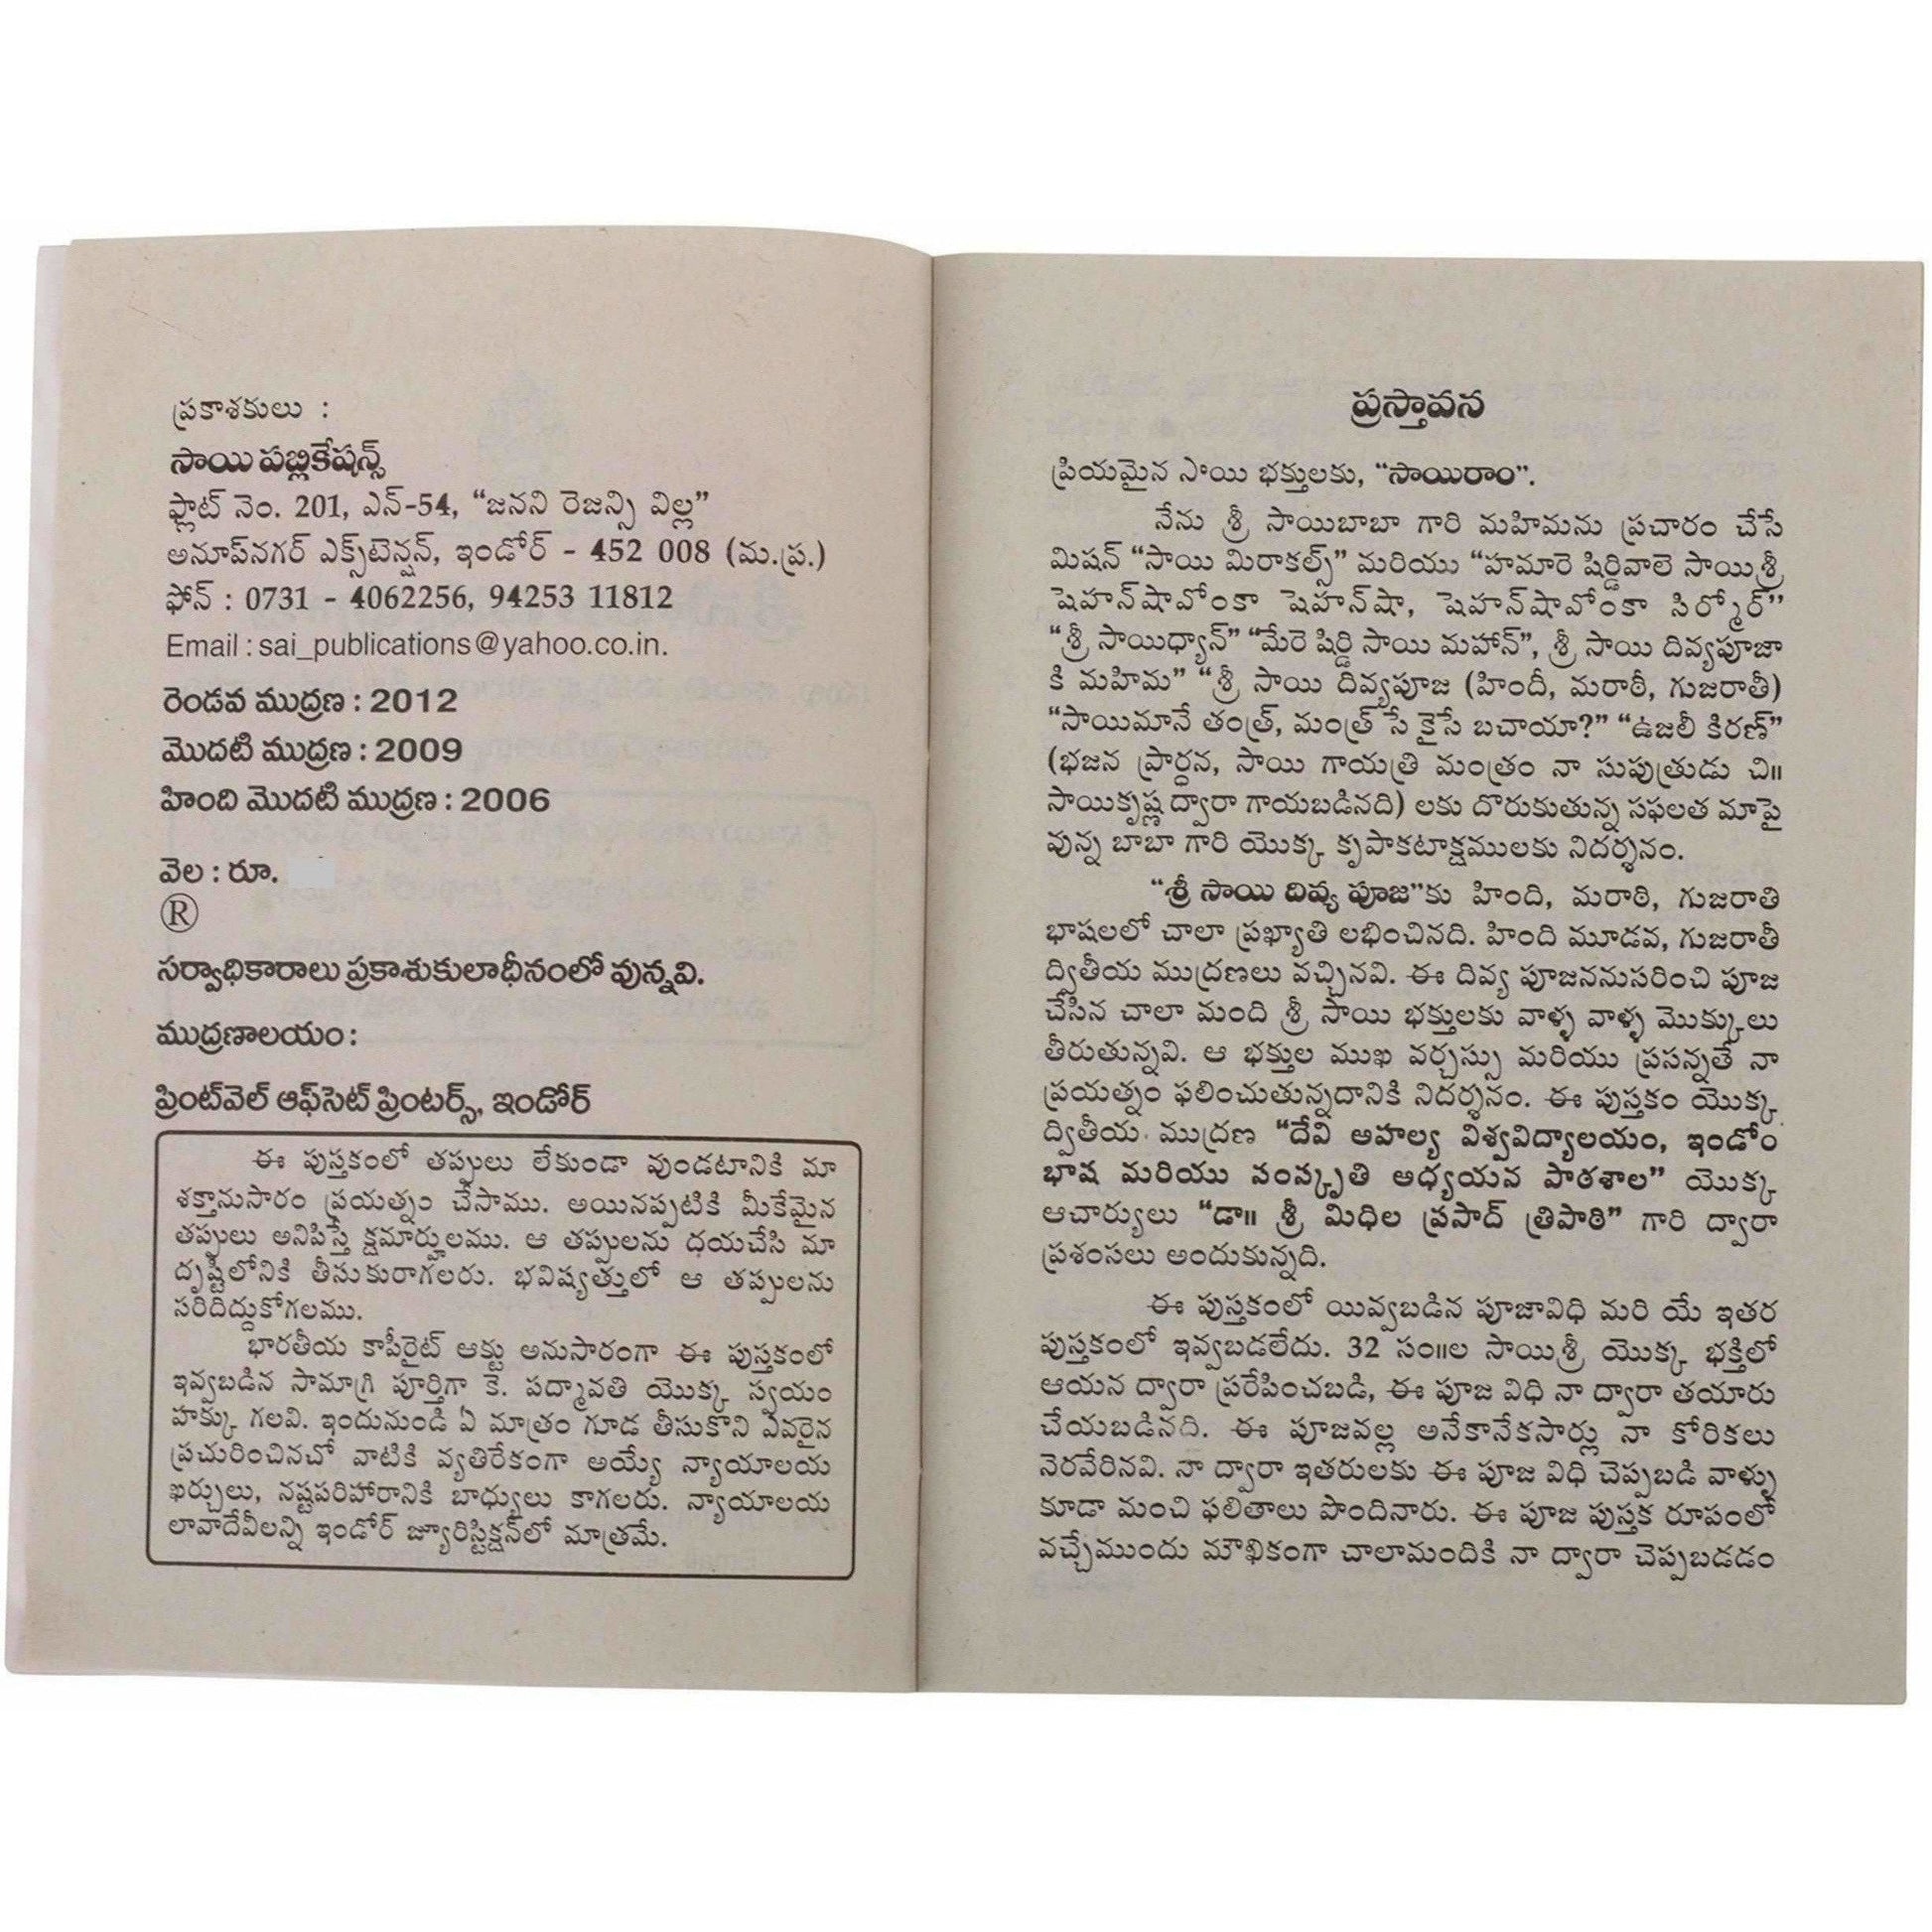 ప్రకాశకులు :
సాయి పబ్లికేషన్స్
ఫ్లాట్ నెం. 201, ఎన్-54, “జనని రెజన్సి విల్ల”
అనూప్‌నగర్ ఎక్స్‌టెన్షన్, ఇండోర్ - 452 008 (మ.ప్ర.)
ఫోన్ : 0731 - 4062256, 94253 11812
Email : sai_publications@yahoo.co.in.
రెండవ ముద్రణ : 2012
మొదటి ముద్రణ : 2009
హింది మొదటి ముద్రణ : 2006
వెల : రూ.
®
సర్వాధికారాలు ప్రకాశుకులాధీనంలో వున్నవి.
ముద్రణాలయం :
ప్రింట్‌వెల్ ఆఫ్‌సెట్ ప్రింటర్స్, ఇండోర్
ఈ పుస్తకంలో తప్పులు లేకుండా వుండటానికి మా
శక్తానుసారం ప్రయత్నం చేసాము. అయినప్పటికి మీకేమైన
తప్పులు అనిపిస్తే క్షమార్హులము. ఆ తప్పులను ధయచేసి మా
దృష్టిలోనికి తీసుకురాగలరు. భవిష్యత్తులో ఆ తప్పులను
సరిదిద్దుకోగలము.
భారతీయ కాపీరైట్ ఆక్టు అనుసారంగా ఈ పుస్తకంలో
ఇవ్వబడిన సామాగ్రి పూర్తిగా కె. పద్మావతి యొక్క స్వయం
హక్కు గలవి. ఇందునుండి ఏ మాత్రం గూడ తీసుకొని ఎవరైన
ప్రచురించినచో వాటికి వ్యతిరేకంగా అయ్యే న్యాయాలయ
ఖర్చులు, నష్టపరిహారానికి బాధ్యులు కాగలరు. న్యాయాలయ
లావాదేవీలన్ని ఇండోర్ జ్యూరిస్టిక్షన్‌లో మాత్రమే.
ప్రస్తావన
ప్రియమైన సాయి భక్తులకు, “సాయిరాం”.
నేను శ్రీ సాయిబాబా గారి మహిమను ప్రచారం చేసే
మిషన్ “సాయి మిరాకల్స్” మరియు “హమారె షిర్డివాలె సాయిశ్రీ
షెహన్‌షావోంకా షెహన్‌షా, షెహన్‌షావోంకా సిర్మోర్”
“శ్రీ సాయిధ్యాన్” “మేరె షిర్డి సాయి మహాన్”, శ్రీ సాయి దివ్యపూజా
కి మహిమ” “శ్రీ సాయి దివ్యపూజ (హిందీ, మరాఠీ, గుజరాతీ)
“సాయిమానే తంత్ర్, మంత్ర్ సే కైసే బచాయా?” “ఉజలీ కిరణ్”
(భజన ప్రార్ధన, సాయి గాయత్రి మంత్రం నా సుపుత్రుడు చి॥
సాయికృష్ణ ద్వారా గాయబడినది) లకు దొరుకుతున్న సఫలత మాపై
వున్న బాబా గారి యొక్క కృపాకటాక్షములకు నిదర్శనం.
“శ్రీ సాయి దివ్య పూజ”కు హింది, మరాఠి, గుజరాతి
భాషలలో చాలా ప్రఖ్యాతి లభించినది. హింది మూడవ, గుజరాతీ
ద్వితీయ ముద్రణలు వచ్చినవి. ఈ దివ్య పూజననుసరించి పూజ
చేసిన చాలా మంది శ్రీ సాయి భక్తులకు వాళ్ళ వాళ్ళ మొక్కులు
తీరుతున్నవి. ఆ భక్తుల ముఖ వర్చస్సు మరియు ప్రసన్నతే నా
ప్రయత్నం ఫలించుతున్నదానికి నిదర్శనం. ఈ పుస్తకం యొక్క
ద్వితీయ ముద్రణ “దేవి అహల్య విశ్వవిద్యాలయం, ఇండోం
భాష మరియు సంస్కృతి అధ్యయన పాఠశాల” యొక్క
ఆచార్యులు “డా॥ శ్రీ మిధిల ప్రసాద్ త్రిపాఠి” గారి ద్వారా
ప్రశంసలు అందుకున్నది.
ఈ పుస్తకంలో యివ్వబడిన పూజావిధి మరి యే ఇతర
పుస్తకంలో ఇవ్వబడలేదు. 32 సం॥ల సాయిశ్రీ యొక్క భక్తిలో
ఆయన ద్వారా ప్రరేపించబడి, ఈ పూజ విధి నా ద్వారా తయారు
చేయబడినది. ఈ పూజవల్ల అనేకానేకసార్లు నా కోరికలు
నెరవేరినవి. నా ద్వారా ఇతరులకు ఈ పూజ విధి చెప్పబడి వాళ్ళు
కూడా మంచి ఫలితాలు పొందినారు. ఈ పూజ పుస్తక రూపంలో
వచ్చేముందు మౌఖికంగా చాలామందికి నా ద్వారా చెప్పబడడం